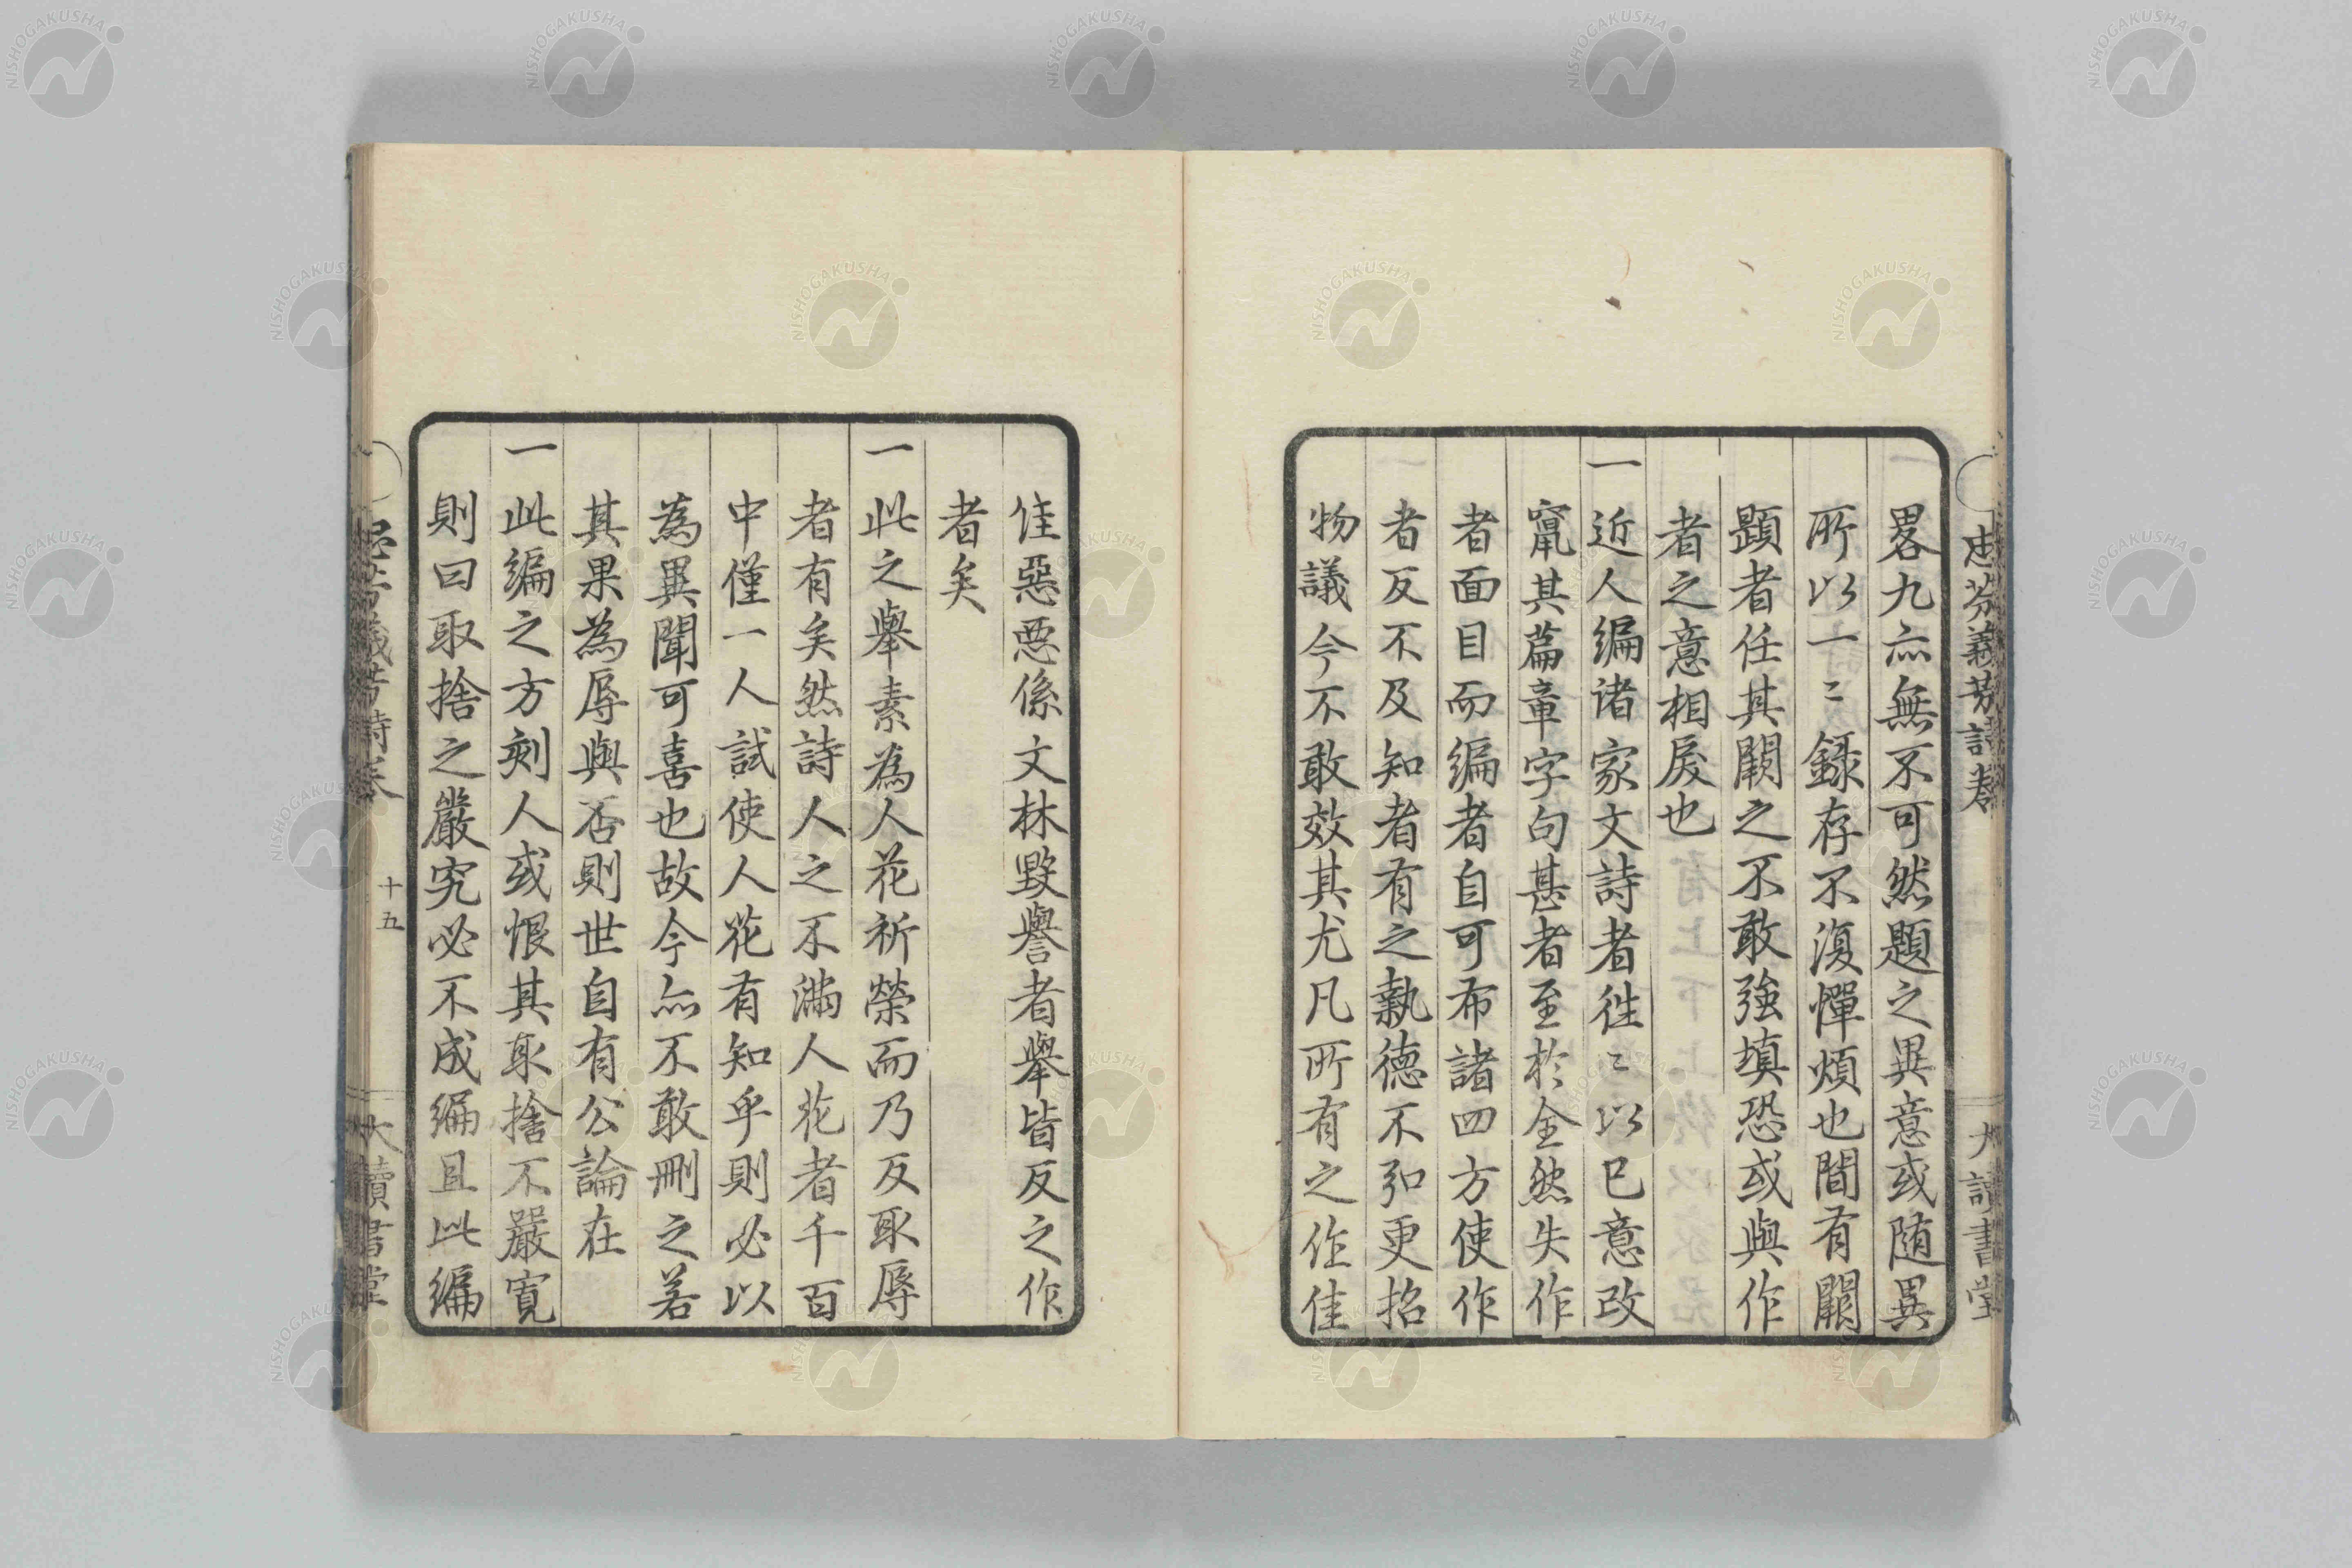 畧九亦無不可然題之異意或随異
所以一〻錄存不復憚煩也間有闕
題者任其闕之不敢強填恐或與作
者之意相戾也
一近人編諸家文詩者徃〻以己意改
竄其篇章字句甚者至於全然失作
者面目而編者自可布諸四方使作
者反不及知者有之執德不弘更招
物議今不敢效其尤凡所有之作佳
佳惡惡係文林毀譽者舉皆反之作
者矣
一此之舉素為人花祈榮而乃反取辱
者有矣然詩人之不滿人花者千百
中僅一人試使人花有知乎則必以
為異聞可喜也故今亦不敢刪之若
其果為辱與否則世自有公論在
一此編之方刻人或恨其取捨不嚴寬
則曰取捨之嚴究必不成編且此編
忠芬義芳詩卷
大讀書堂
十五
大讀書堂
NISHOGAKUSHA